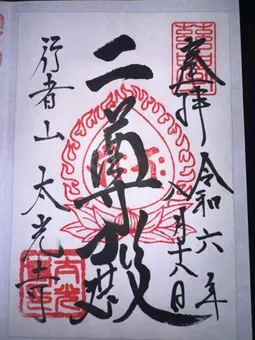 奉拝
令和六年
八月十八日
二尊殿
行者山 太光寺